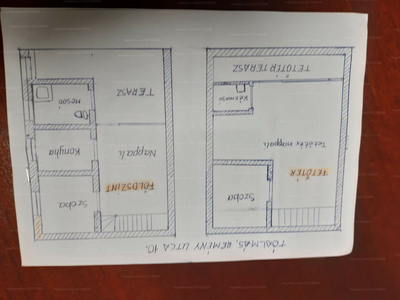 TÓALMÁS, REMÉNY UTCA 10.
TETŐTÉR
Szoba
Tetőtéri nappali
Kézmosó
TETŐTÉR TERASZ
FÖLDSZINT
Szoba
Nappali
Konyha
MOSDÓ
TERASZ